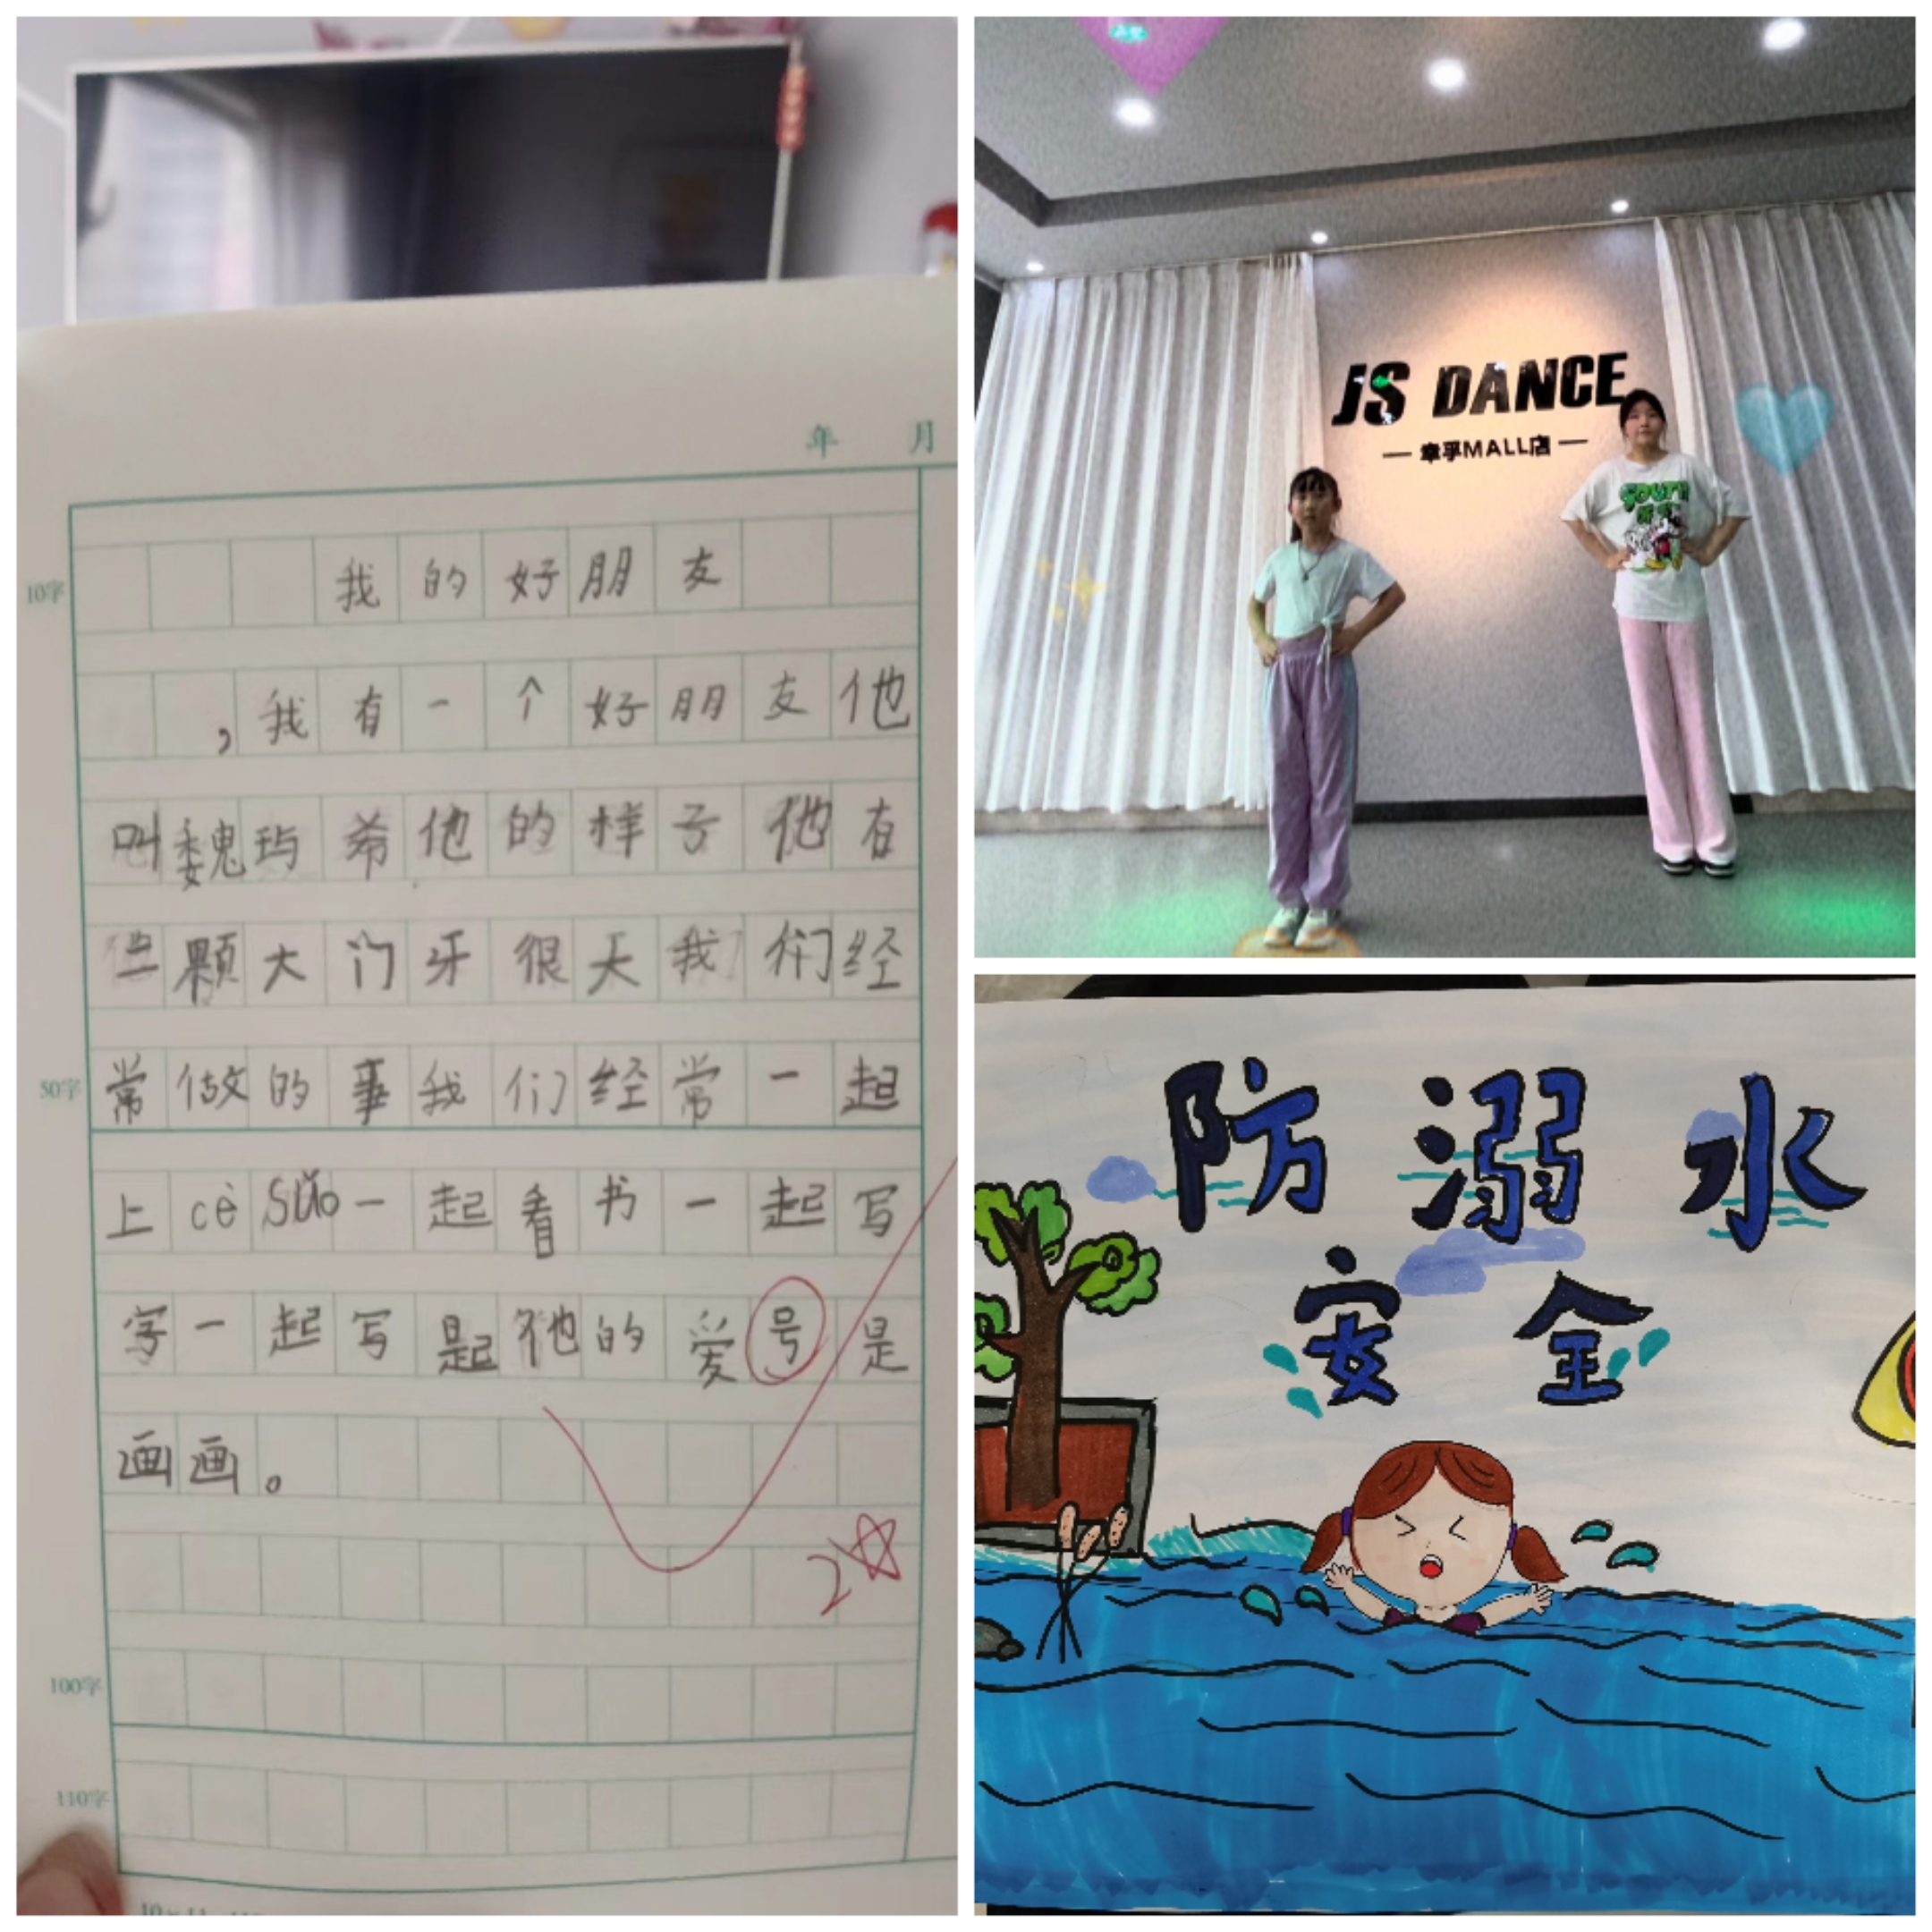 年 月
10字
我的好朋友
，我有一个好朋友他
叫魏玙希他的样子他有
颗大门牙很大我们经
50字
常做的事我们经常一起
上cèsuǒ一起看书一起写
字一起写 他的爱号是
画画。
2☆
100字
110字
JS DANCE
MALL店
SOUTH
防溺水
安全